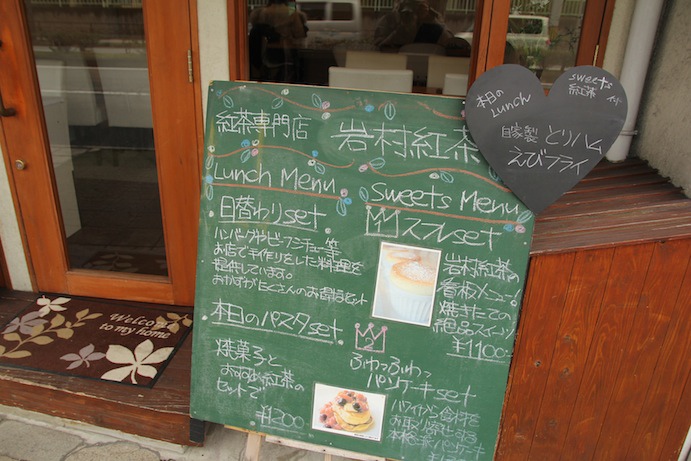 紅茶専門店
岩村紅茶
Lunch Menu
日替わりset
ハンバーグやビーフシチュー等
お店で手作りをした料理を
提供しています。
おかずがたくさんのお食事セット
本日のパスタset
焼菓子と
おすすめ紅茶の
セットで
¥1200
Sweets Menu
スフレset
岩村紅茶の
看板メニュー。
焼きたての
絶品スイーツ
¥1100
ふわっふわっ
パンケーキset
ハワイから食材を
お取り寄せする
本日の
Lunch
sweets
紅茶付
自家製 とりハム
えびフライ
Welcome
to my home